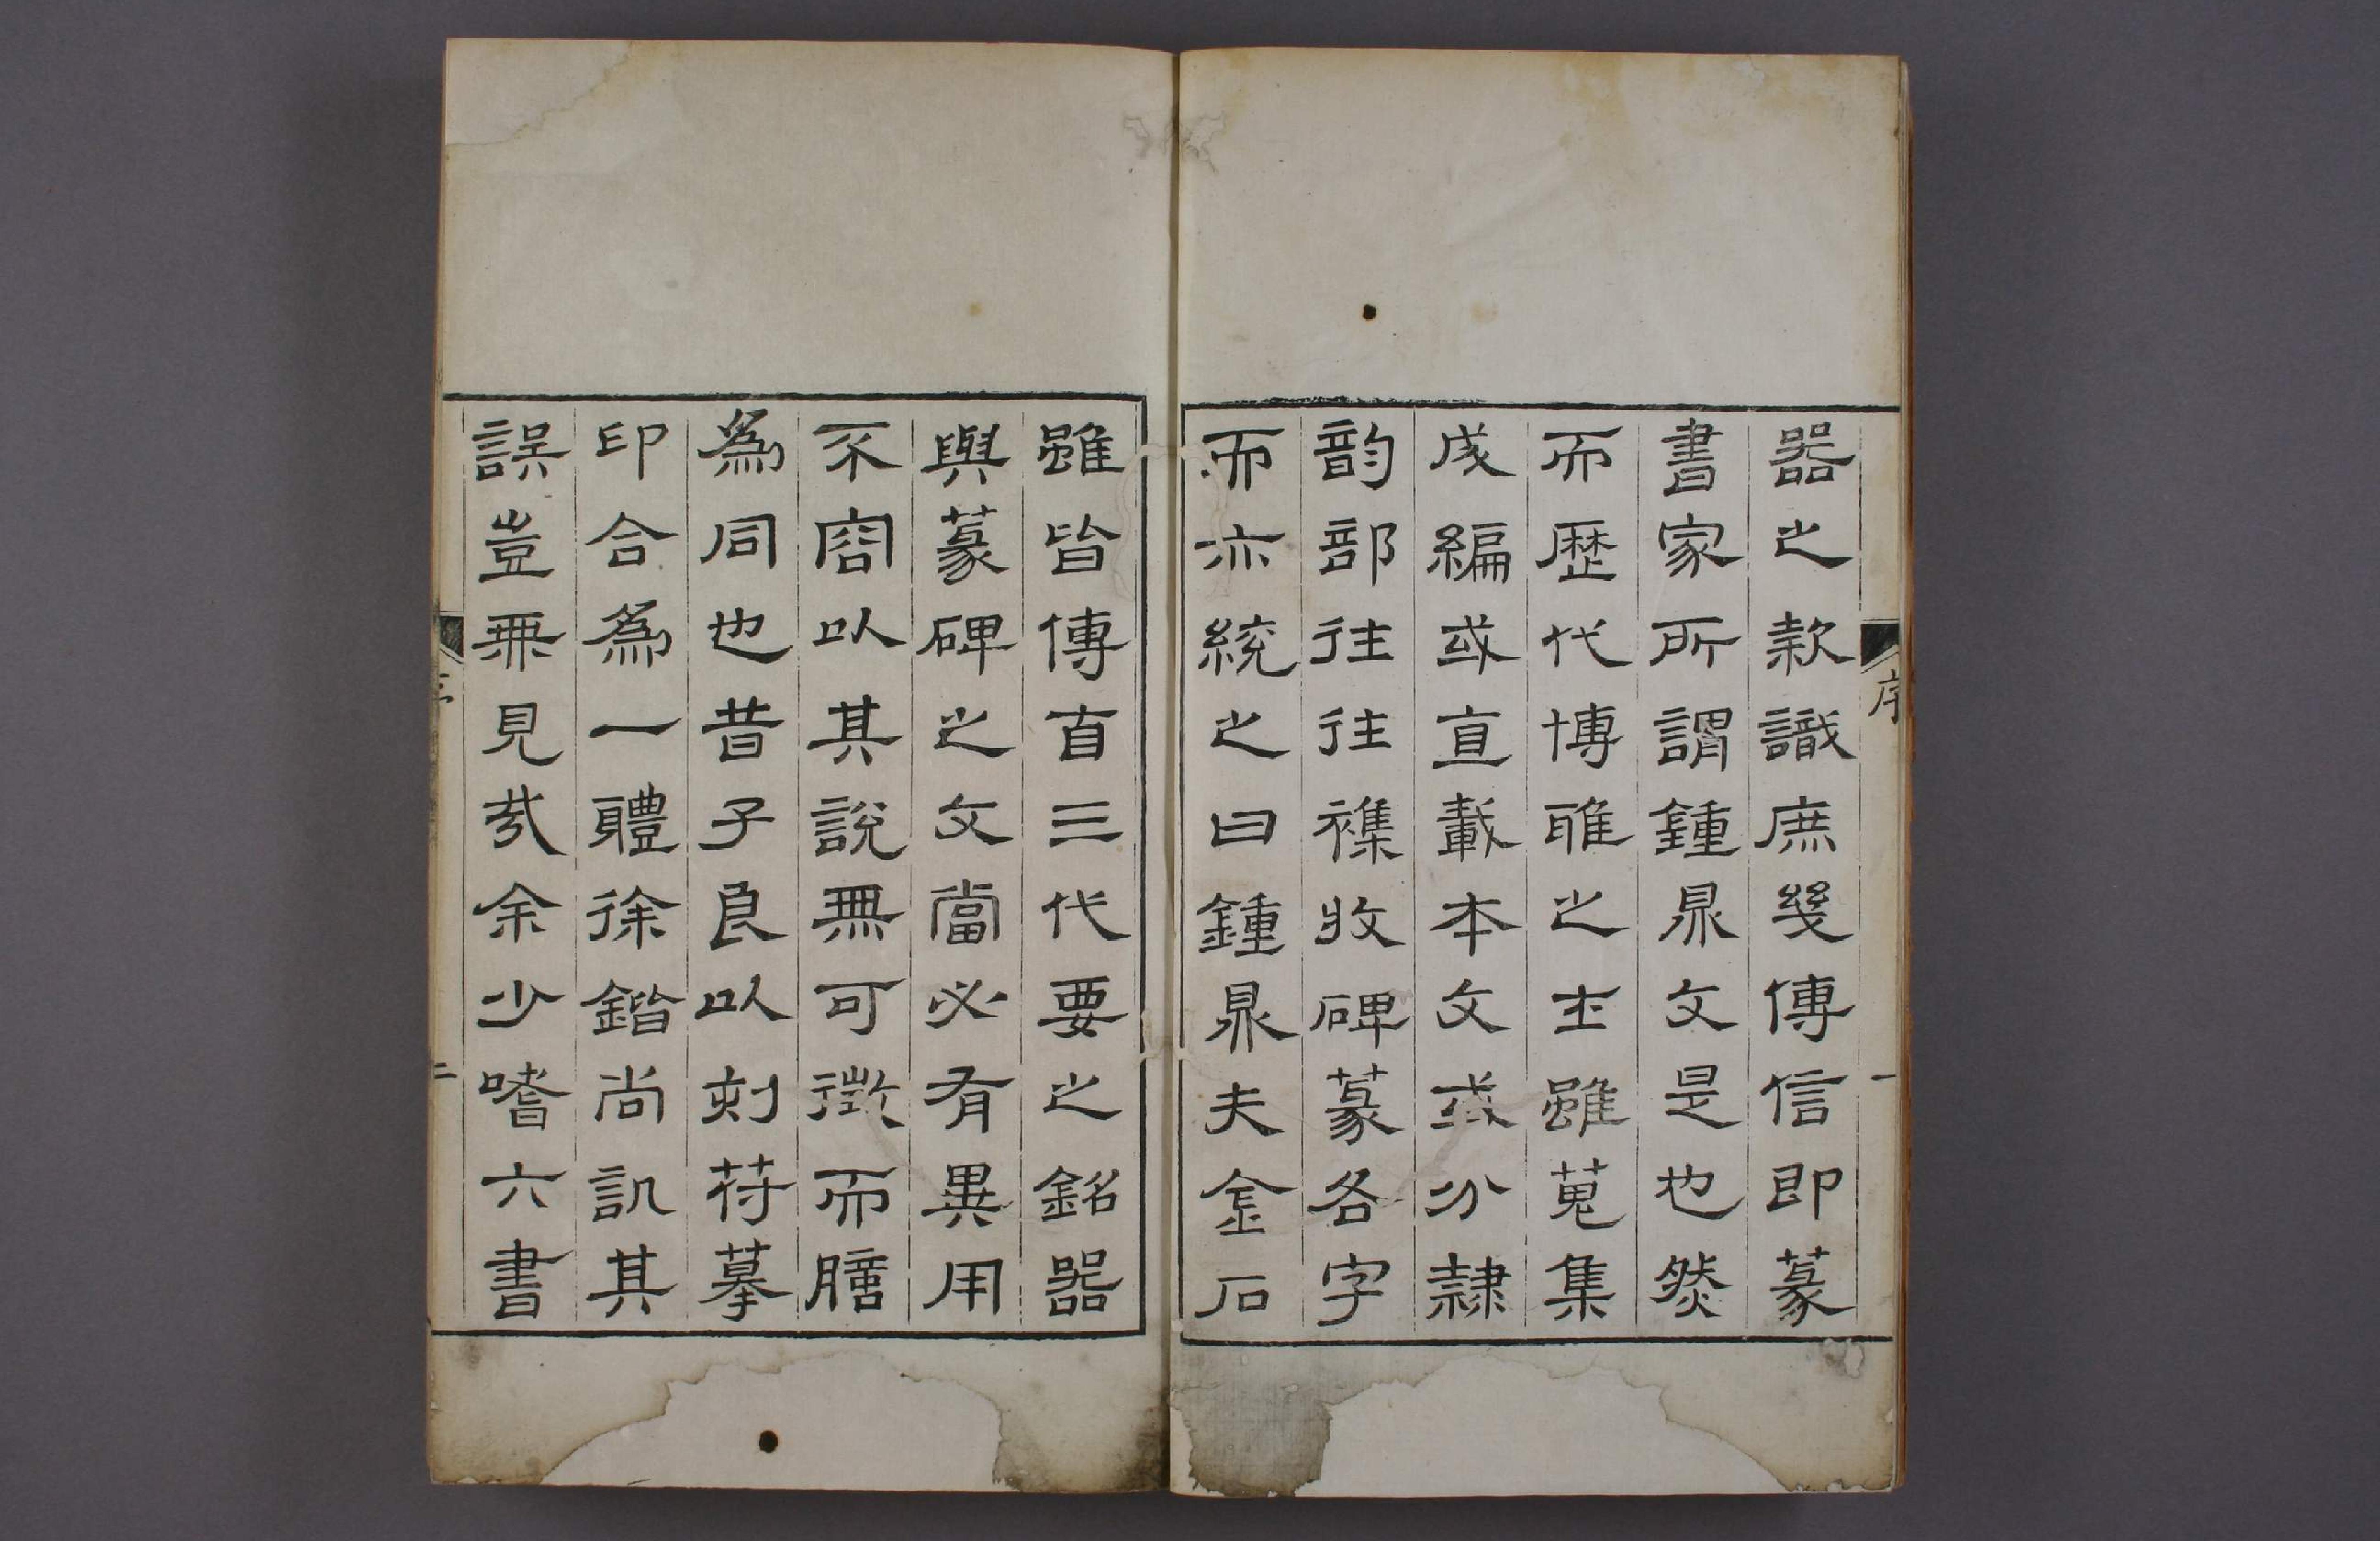 器之款識庶幾傳信即篆
書家所謂鍾鼎文是也然
而歷代博雅之士雖蒐集
成編或直載本文或分隸
韵部往往襍收碑篆各字
而亦統之曰鍾鼎夫金石
雖皆傳百三代要之銘器
與篆碑之文當必有異用
不容以其說無可徵而臆
為同也昔子良以刻符摹
印合為一體徐鍇尚訊其
誤豈無見哉余少嗜六書
序
一
二